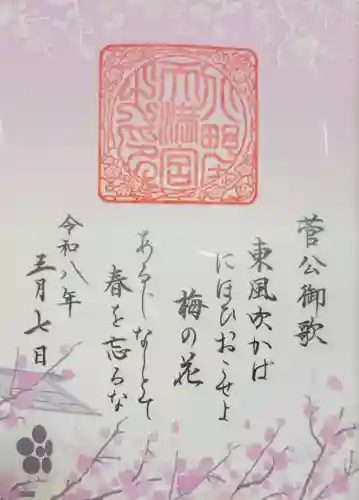 菅公御歌
東風吹かば
にほひおこせよ
梅の花
あるじなしとて
春を忘るな
令和八年
三月七日